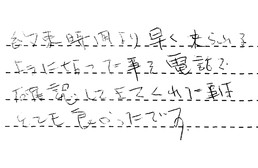 約束時間より早く来られる
ようになった事を電話で
確認してまてくれた事は
とても良かったです。